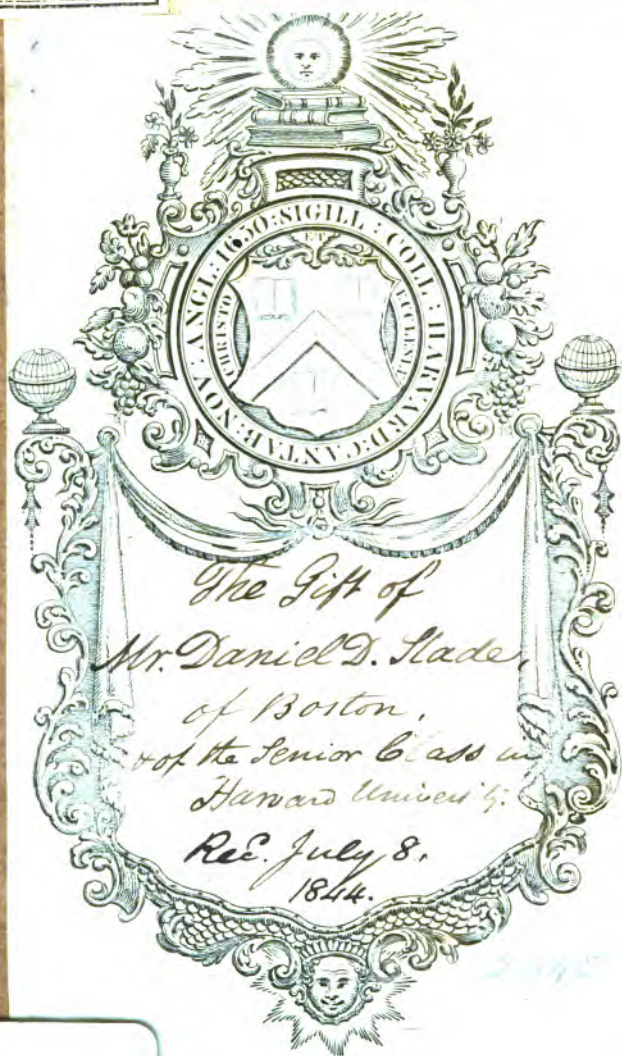 SIGILL : COLL : HARVARD : CANTAB : NOV : ANGL : 1650 :
CHRISTO ET ECCLESIÆ
The Gift of
Mr. Daniel D. Slade,
of Boston,
& of the Senior Class in
Harvard University.
Rec. July 8,
1844.